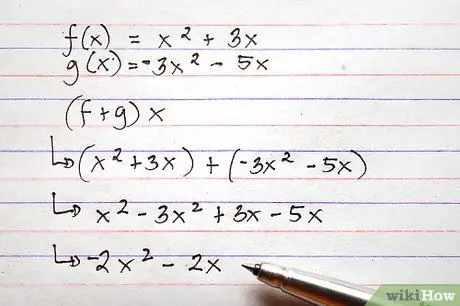 f(x) = x² + 3x
g(x) = -3x² - 5x
(f+g) x
↳ (x² + 3x) + (-3x² - 5x)
↳ x² - 3x² + 3x - 5x
↳ -2x² - 2x
wikiHow